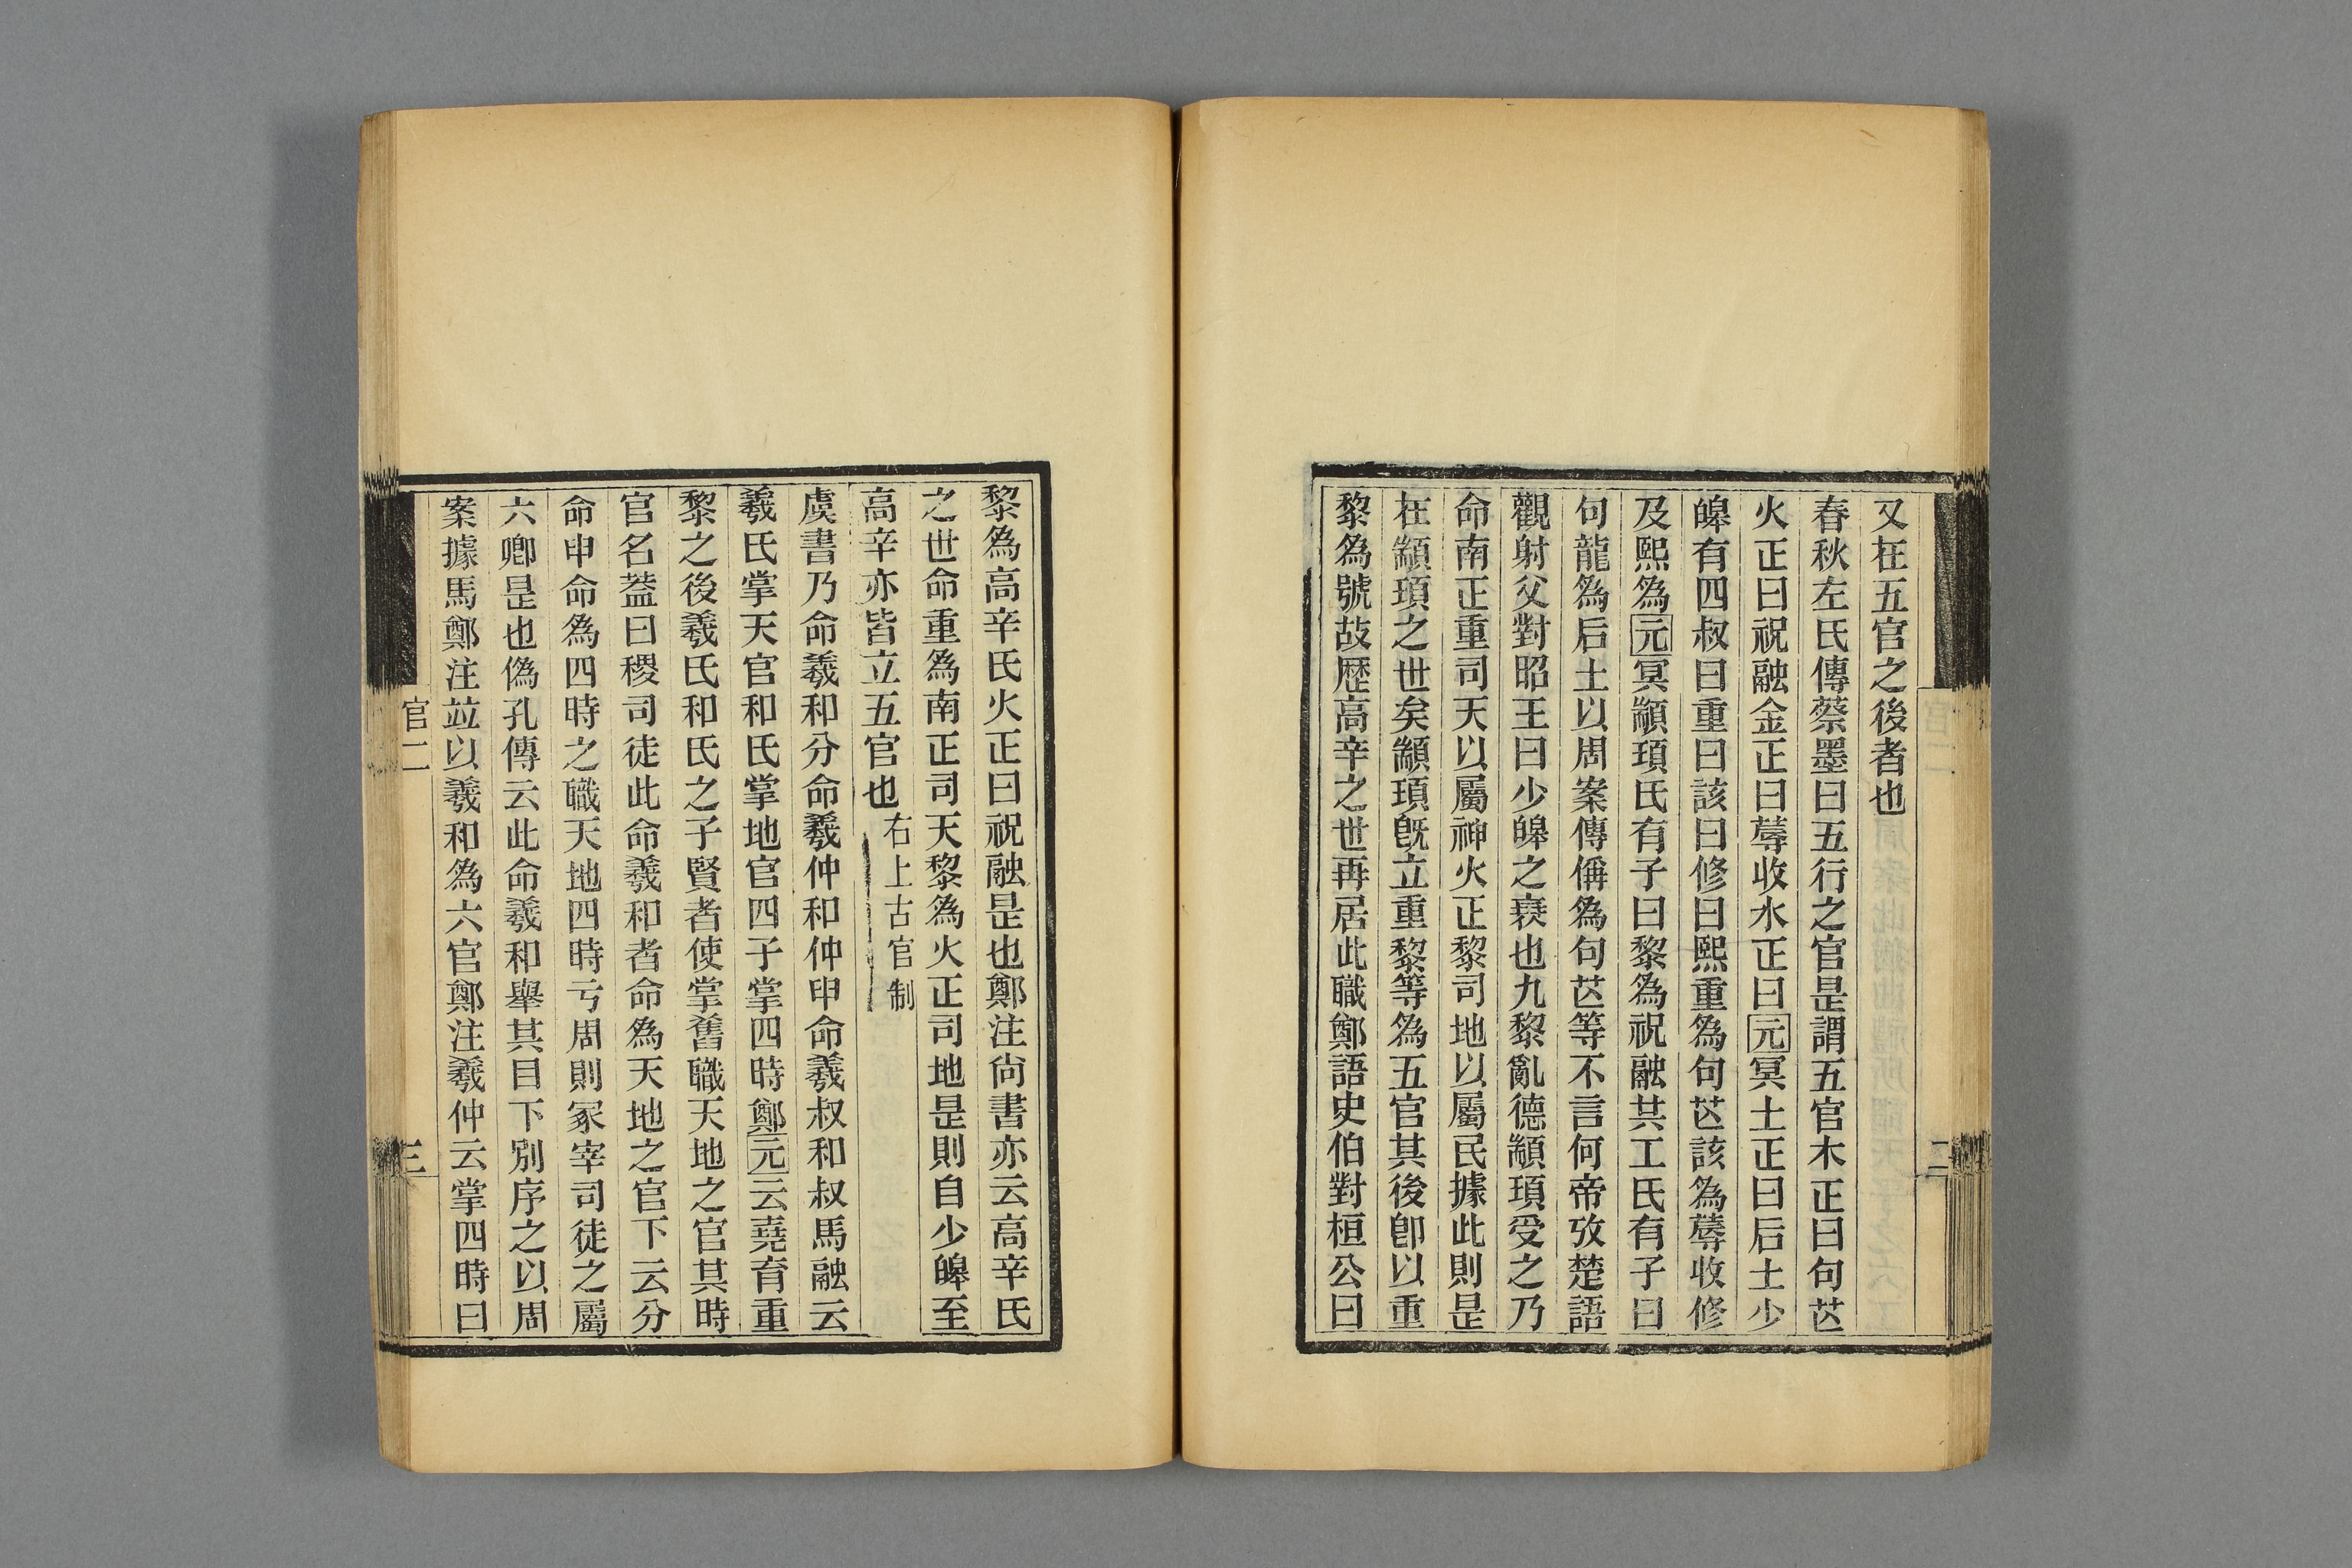 又在五官之後者也
春秋左氏傳蔡墨曰五行之官是謂五官木正曰句芒
火正曰祝融金正曰蓐收水正曰元冥土正曰后土少
皞有四叔曰重曰該曰修曰熙重為句芒該為蓐收修
及熙為元冥顓頊氏有子曰黎為祝融共工氏有子曰
句龍為后土以周案傳偁為句芒等不言何帝攷楚語
觀射父對昭王曰少皞之衰也九黎亂德顓頊受之乃
命南正重司天以屬神火正黎司地以屬民據此則是
在顓頊之世矣顓頊既立重黎等為五官其後卽以重
黎為號故歷高辛之世再居此職鄭語史伯對桓公曰
二
黎為高辛氏火正曰祝融是也鄭注尙書亦云高辛氏
之世命重為南正司天黎為火正司地是則自少皞至
高辛亦皆立五官也右上古官制
虞書乃命羲和分命羲仲和仲申命羲叔和叔馬融云
羲氏掌天官和氏掌地官四子掌四時鄭元云堯育重
黎之後羲氏和氏之子賢者使掌舊職天地之官其時
官名蓋曰稷司徒此命羲和者命為天地之官下云分
命申命為四時之職天地四時亏周則冢宰司徒之屬
六卿是也僞孔傳云此命羲和舉其目下別序之以周
案據馬鄭注竝以羲和為六官鄭注羲仲云掌四時曰
官二
三